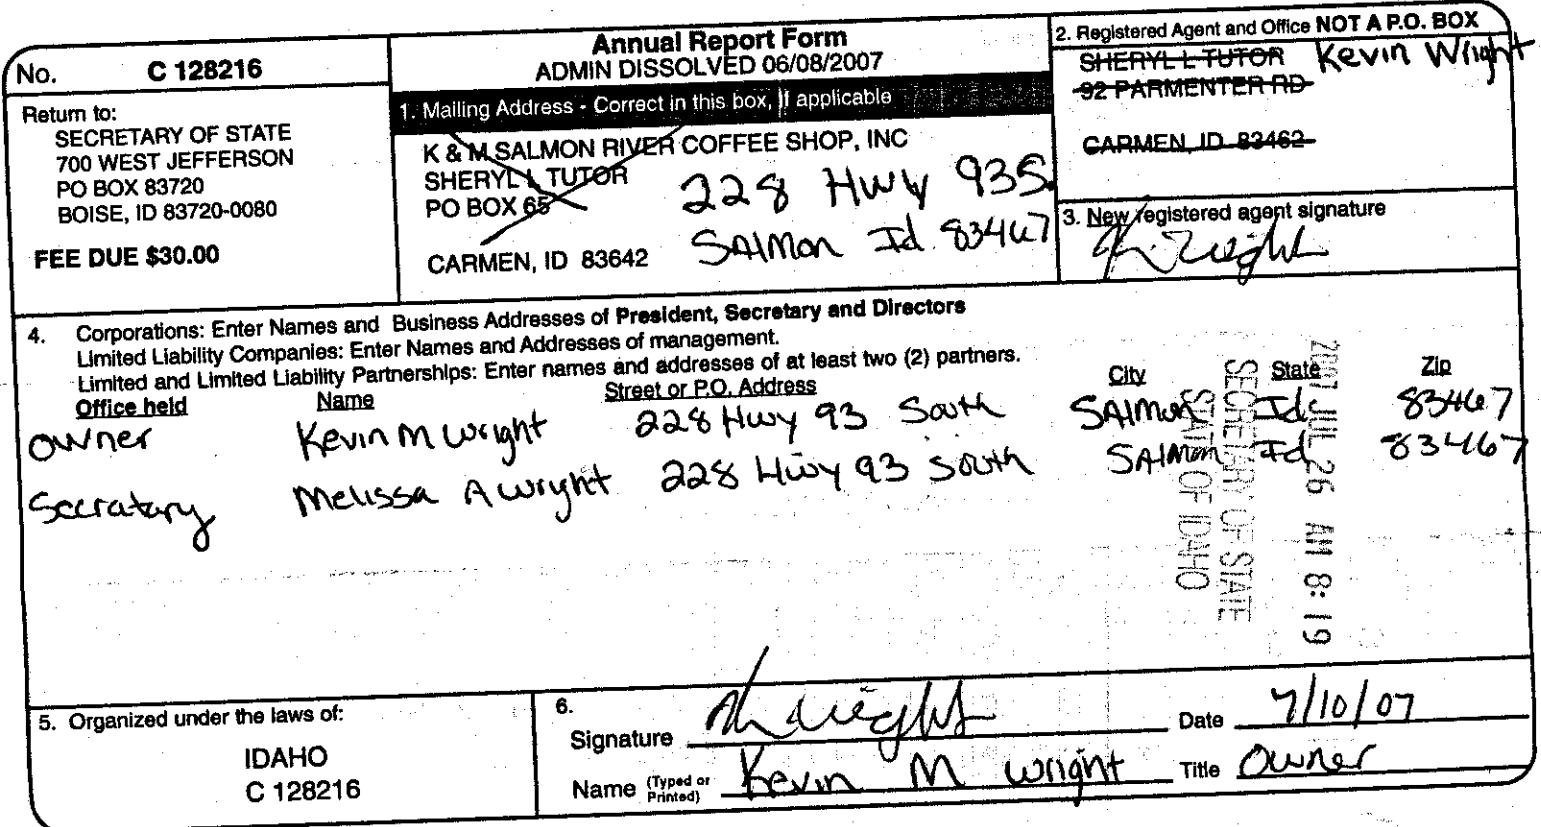 No. C 128216
Return to:
SECRETARY OF STATE
700 WEST JEFFERSON
PO BOX 83720
BOISE, ID 83720-0080
FEE DUE $30.00
Annual Report Form
ADMIN DISSOLVED 06/08/2007
1. Mailing Address - Correct in this box, if applicable
K & M SALMON RIVER COFFEE SHOP, INC
SHERYL L TUTOR
PO BOX 65
CARMEN, ID 83642
228 Hwy 93S.
SAlmon Id 83467
2. Registered Agent and Office NOT A P.O. BOX
SHERYL L TUTOR Kevin Wright
92 PARMENTER RD
CARMEN, ID 83462
3. New registered agent signature
K Wright
4. Corporations: Enter Names and Business Addresses of President, Secretary and Directors
Limited Liability Companies: Enter Names and Addresses of management.
Limited and Limited Liability Partnerships: Enter names and addresses of at least two (2) partners.
Office held Name Street or P.O. Address City State Zip
owner Kevin M Wright 228 Hwy 93 South SAlmon Id 83467
Secratary Melissa A Wright 228 Hwy 93 South SAlmon Id 83467
2007 JUL 26 AM 8:19
SECRETARY OF STATE
STATE OF IDAHO
5. Organized under the laws of:
IDAHO
C 128216
6.
Signature K Wright Date 7/10/07
Name (Typed or Printed) Kevin M Wright Title Owner